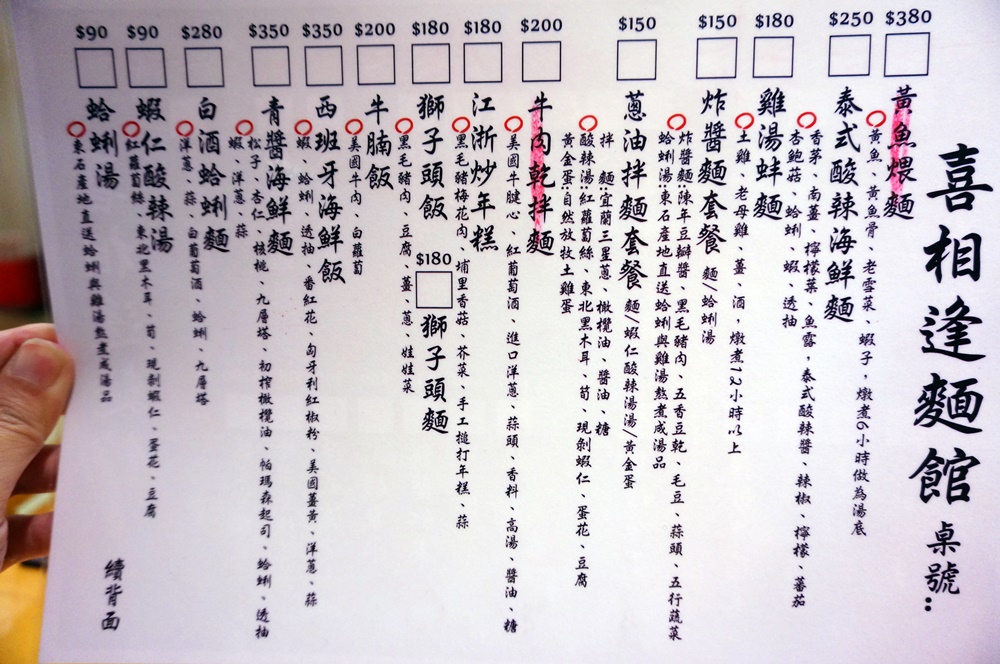 喜相逢麵館 桌號:
$380
黃魚煨麵
黃魚、黃魚骨、老雪菜、蝦子，燉煮6小時做為湯底
$250
泰式酸辣海鮮麵
香茅、南薑、檸檬葉、魚露，泰式酸辣醬、辣椒、檸檬、蕃茄
杏鮑菇、蛤蜊、蝦、透抽
$180
雞湯蚌麵
土雞、老母雞、薑、酒，燉煮12小時以上
$150
炸醬麵套餐 麵/蛤蜊湯
炸醬麵:陳年豆瓣醬、黑毛豬肉、五香豆乾、毛豆、蒜頭、五行蔬菜
蛤蜊湯:東石產地直送蛤蜊與雞湯熬煮成湯品
$150
蔥油拌麵套餐 麵/蝦仁酸辣湯湯/黃金蛋
拌 麵:宜蘭三星蔥、橄欖油、醬油、糖
酸辣湯:紅蘿蔔絲、東北黑木耳、筍、現剝蝦仁、蛋花、豆腐
黃金蛋:自然放牧土雞蛋
$200
牛肉乾拌麵
美國牛腱心、紅葡萄酒、進口洋蔥、蒜頭、香料、高湯、醬油、糖
$180
江浙炒年糕
黑毛豬梅花肉、埔里香菇、芥菜、手工搥打年糕、蒜
$180
獅子頭飯
$180
獅子頭麵
黑毛豬肉、豆腐、薑、蔥、娃娃菜
$200
牛腩飯
美國牛肉、白蘿蔔
$350
西班牙海鮮飯
蝦、蛤蜊、透抽、番紅花、匈牙利紅椒粉、美國薑黃、洋蔥、蒜
$350
青醬海鮮麵
松子、杏仁、核桃、九層塔、初榨橄欖油、帕瑪森起司、蛤蜊、透抽
蝦、洋蔥、蒜
$280
白酒蛤蜊麵
洋蔥、蒜、白葡萄酒、蛤蜊、九層塔
$90
蝦仁酸辣湯
紅蘿蔔絲、東北黑木耳、筍、現剝蝦仁、蛋花、豆腐
$90
蛤蜊湯
東石產地直送蛤蜊與雞湯熬煮成湯品
續背面